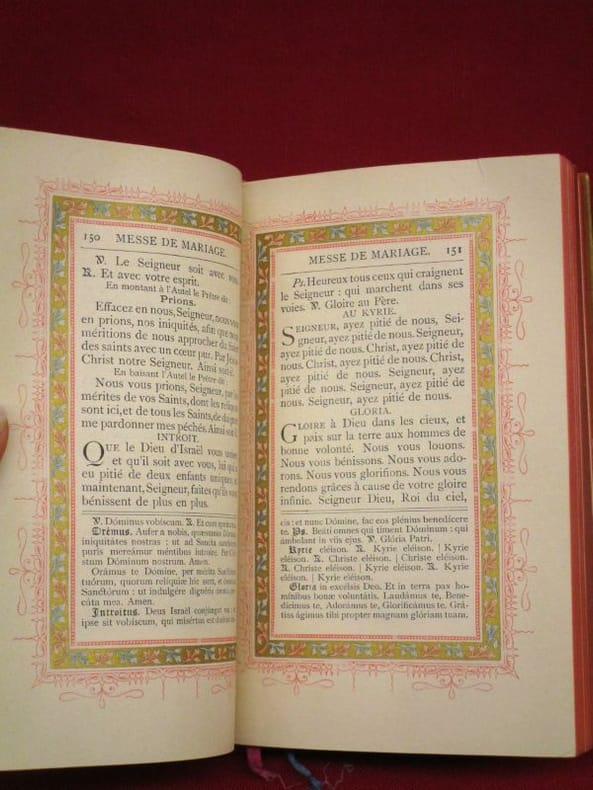 150 MESSE DE MARIAGE.
℣. Le Seigneur soit avec vous
℟. Et avec votre esprit.
En montant à l'Autel le Prêtre dit :
Prions.
Effacez en nous, Seigneur, nous vous
en prions, nos iniquités, afin que nous
méritions de nous approcher du
des saints avec un cœur pur. Par
Christ notre Seigneur. Ainsi soit-il.
En baisant l'Autel le Prêtre dit :
Nous vous prions, Seigneur, par les
mérites de vos Saints, dont les reliques
sont ici, et de tous les Saints, de daigner
me pardonner mes péchés. Ainsi soit-il.
INTROIT.
QUE le Dieu d'Israël vous unisse
et qu'il soit avec vous, lui qui a
eu pitié de deux enfants uniques, et
maintenant, Seigneur, faites qu'ils vous
bénissent de plus en plus.
℣. Dóminus vobíscum. ℟. Et cum
Orémus. Aufer a nobis, quǽsumus Dómine
iniquitátes nostras : ut ad Sancta
puris mereámur méntibus introíre. Per
stum Dóminum nostrum. Amen.
Orámus te Dómine, per mérita Sanctórum
tuórum, quorum relíquiæ hic sunt, et ómnium
Sanctórum : ut indulgére dignéris ómnia
cáta mea. Amen.
Introitus. Deus Israël conjúngat vos :
ipse sit vobíscum, qui misértus est duóbus
MESSE DE MARIAGE. 151
Ps. Heureux tous ceux qui craignent
le Seigneur : qui marchent dans ses
voies. ℣. Gloire au Père.
AU KYRIE.
SEIGNEUR, ayez pitié de nous, Sei-
gneur, ayez pitié de nous. Seigneur,
ayez pitié de nous. Christ, ayez pitié
de nous. Christ, ayez pitié de nous. Christ,
ayez pitié de nous. Seigneur, ayez
pitié de nous. Seigneur, ayez pitié de
nous. Seigneur, ayez pitié de nous.
GLORIA.
GLOIRE à Dieu dans les cieux, et
paix sur la terre aux hommes de
bonne volonté. Nous vous louons.
Nous vous bénissons. Nous vous ado-
rons. Nous vous glorifions. Nous vous
rendons grâces à cause de votre gloire
infinie. Seigneur Dieu, Roi du ciel,
cis : et nunc Dómine, fac eos plénius benedícere
te. Ps. Beáti omnes qui timent Dóminum : qui
ámbulant in viis ejus. ℣. Glória Patri.
Kyrie eléison. ℟. Kyrie eléison. | Kyrie
eléison. ℟. Christe eléison. | Christe eléison.
℟. Christe eléison. | Kyrie eléison. ℟. Kyrie
eléison. | Kyrie eléison.
Gloria in excélsis Deo. Et in terra pax ho-
mínibus bonæ voluntátis. Laudámus te, Bene-
dícimus te, Adorámus te, Glorificámus te. Grá-
tias ágimus tibi propter magnam glóriam tuam.